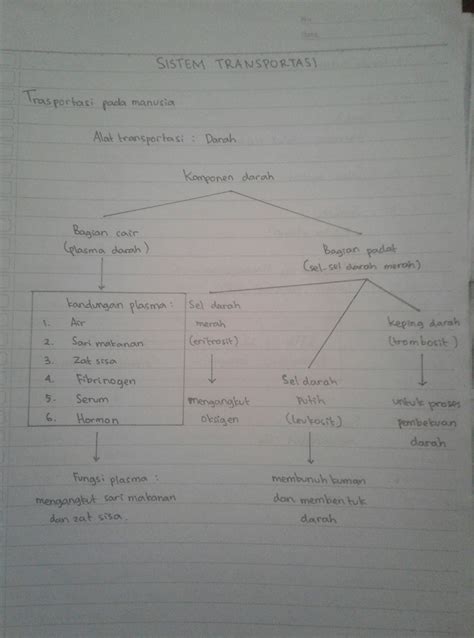 No
Date
SISTEM TRANSPORTASI
Trasportasi pada manusia
Alat transportasi : Darah
Komponen darah
Bagian cair
(plasma darah)
Bagian padat
(sel-sel darah merah)
kandungan plasma :
1. Air
2. Sari makanan
3. Zat sisa
4. Fibrinogen
5. Serum
6. Hormon
Fungsi plasma :
mengangkut sari makanan
dan zat sisa.
Sel darah
merah
(eritrosit)
mengangkut
oksigen
Sel darah
putih
(leukosit)
membunuh kuman
dan membentuk
darah
keping darah
(trombosit)
untuk proses
pembekuan
darah